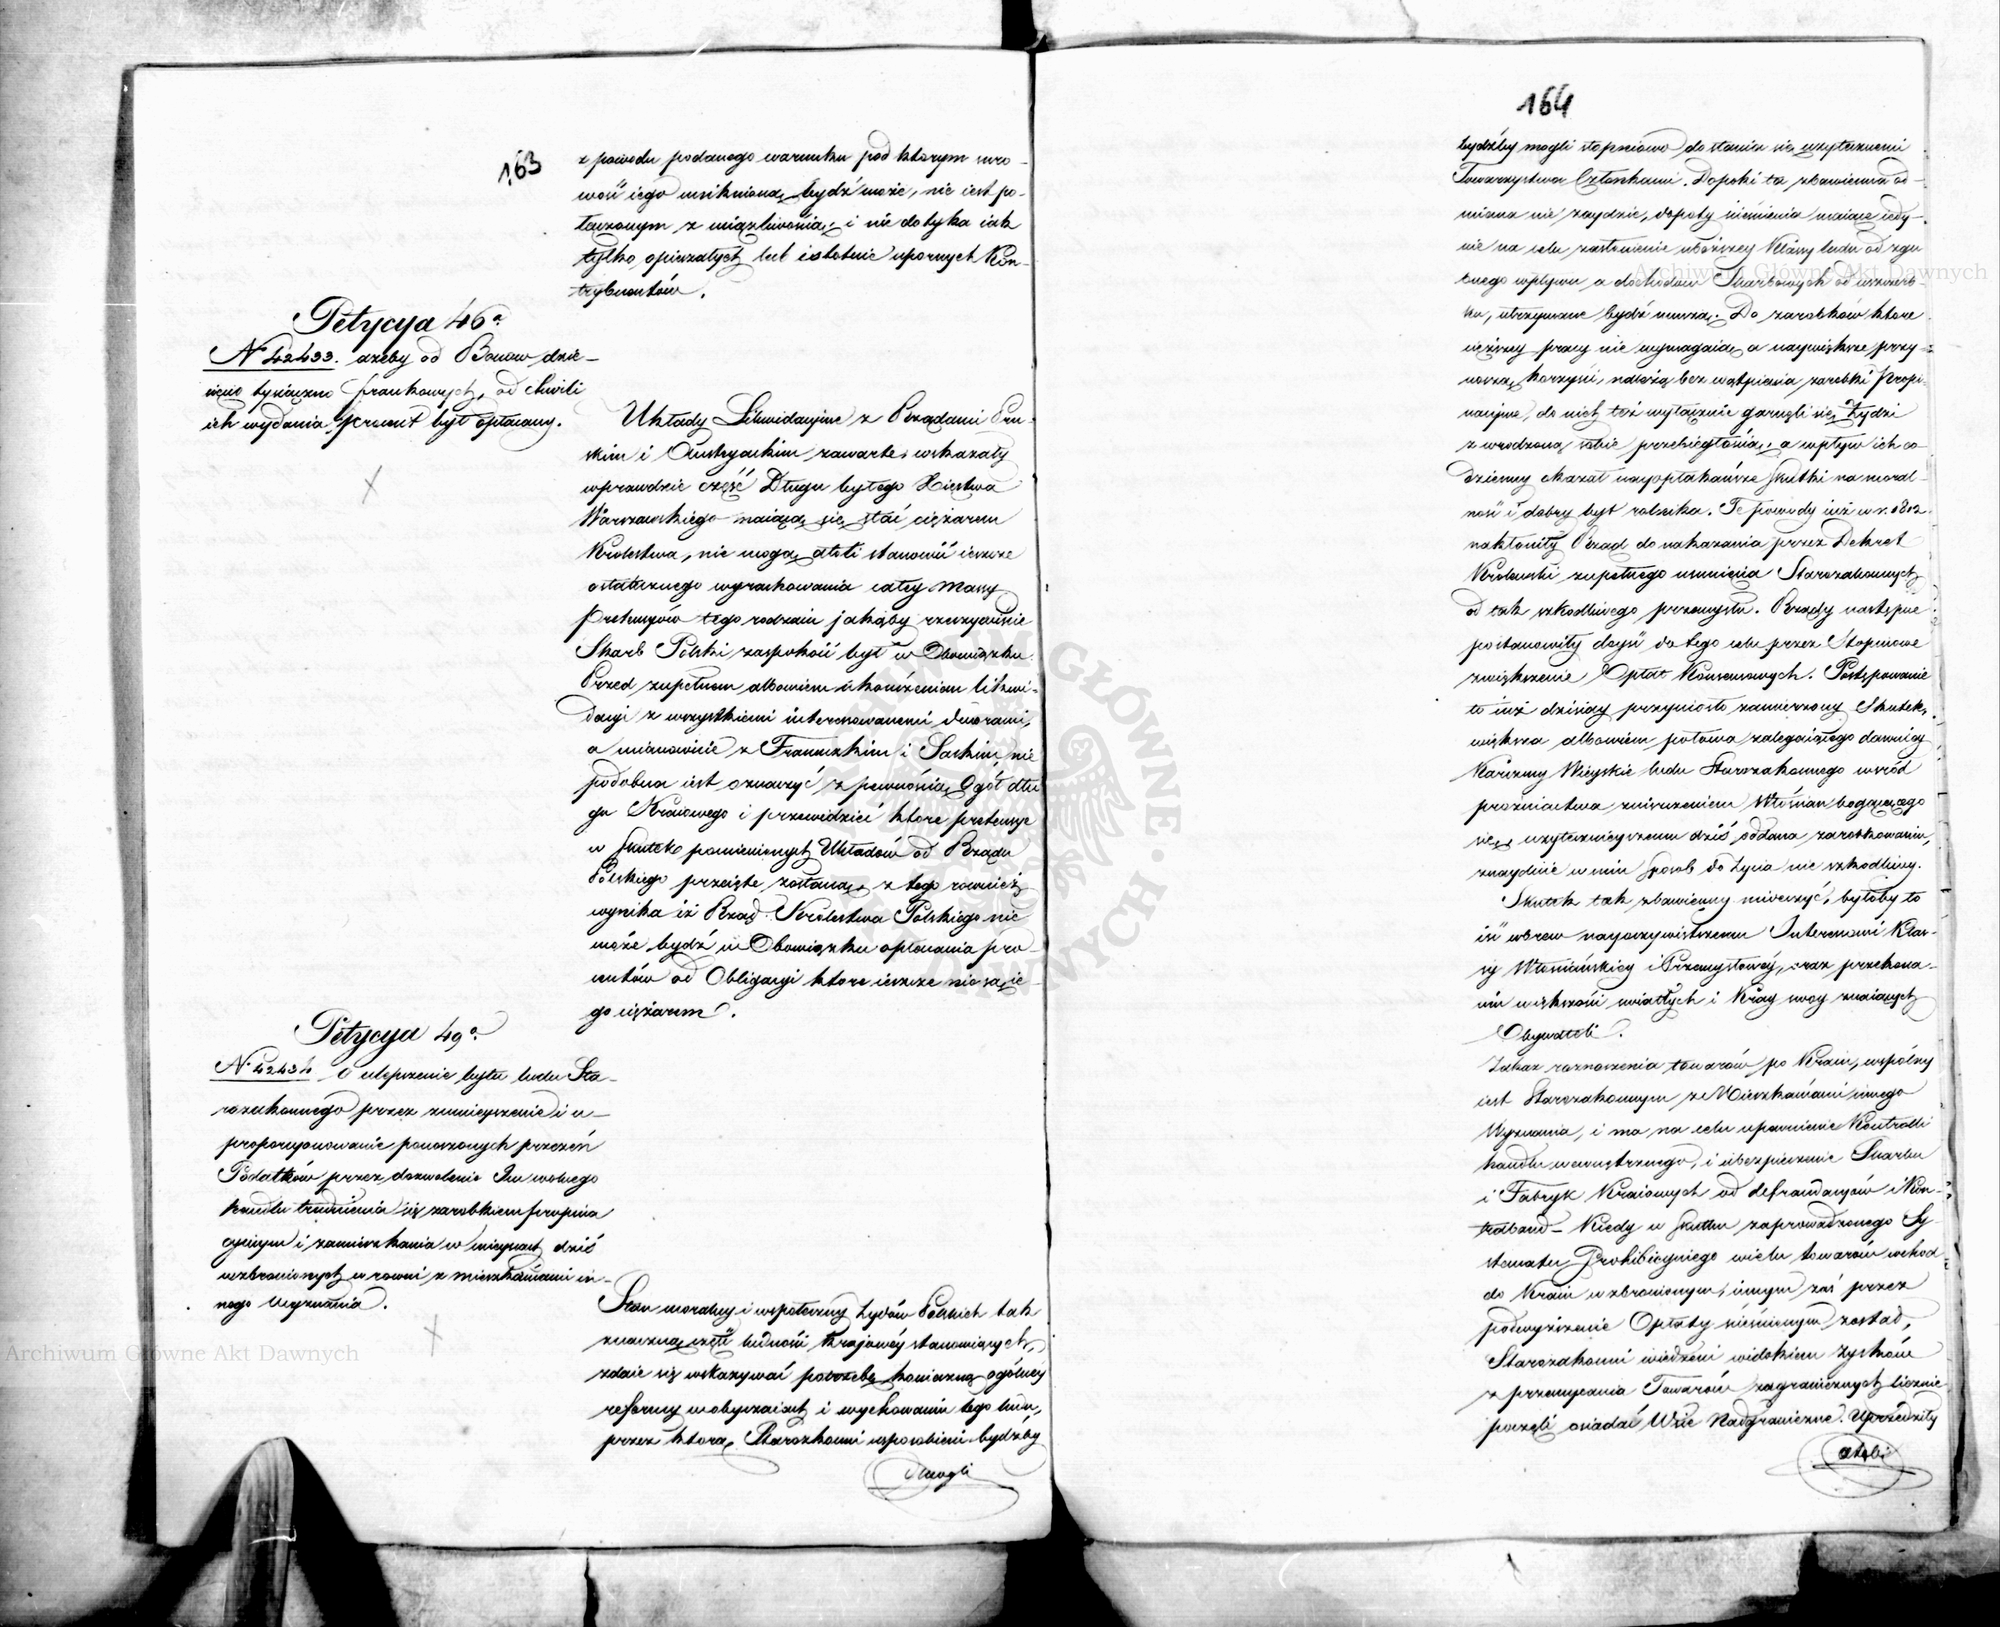 163
z powodu podanego warunku pod ktorym suro-
wość iego uniknioną bydź może, nie iest po-
łączonym z uciążliwością, i nie dotyka iak
tylko opieszałych lub istotnie upornych Kon-
trybuentów.
Petycya 46a
N 42433. ażeby od Bonow dzie-
sięcio tysiączno frankowych, od chwili
ich wydania procent był opłacany.
Układy Likwidacyine z Rządami Pru-
skim i Austryackim zawarte, wskazały
wprawdzie część Długu byłego Xięstwa
Warszawskiego maiącą się stać ciężarem
Krolestwa, nie mogą atoli stanowić ieszcze
ostatecznego wyrachowania całey Massy
Pretensyów tego rodzaiu jakąby rzeczywiście
Skarb Polski zaspokoić był w Obowiązku.
Przed zupełnem albowiem ukończeniem likwi-
dacyi z wszystkiemi interessowanemi dworami,
a mianowicie z Francuzkim i Saskim, nie
podobna iest oznaczyć z pewnością Ogół dłu
gu Kraiowego i przewidzieć ktore pretensye
w skutek pomienionych Układów od Rządu
Polskiego przeięte zostaną, z tego rownież
wynika iż Rząd Królestwa Polskiego nie
może bydź w Obowiązku opłacania pro-
centów od Obligacyi ktore ieszcze nie są ie-
go ciężarem.
Petycya 49a
N 42434 o ulepszenie bytu ludu Sta-
rozakonnego przez zmnieyszenie i u-
proporcyonowanie ponoszonych przezeń
Podatków przez dozwolenie Im wolnego
handlu trudnienia się zarobkiem propina
cyinym i zamieszkania w mieyscach dziś
wzbronionych w rowni z mieszkańcami in-
nego Wyznania.
Stan moralny i społeczny Żydów Polskich tak
znaczną część ludności Krajowéy stanowiących,
zdaie się wskazywać potrzebę konieczną ogólney
reformy w obyczaiach i wychowaniu tego ludu,
przez ktorą Starozkonni usposobieni bydźby
mogli
164
bydźby mogli stopniowo do stania się użytecznemi
Towarzystwa Członkami. Dopoki ta zbawienna od-
miana nie zaydzie, dopoty ścieśnienia maiące iedy-
nie na celu zasłonienie uboższey Klassy ludu od zgu
bnego wpływu a dochodow Skarbowych od uszczerb-
ku, utrzymane bydź muszą. Do zarobków ktore
cięższey pracy nie wymagaią a naywiększe przy-
noszą korzyści, należą bez wątpienia zarobki Propi-
nacyjne, do nich też wyłącznie garnęli się Żydzi
z wrodzoną sobie przebiegłością, a wpływ ich co
dzienny okazał nayopłakańsze skutki na moral-
ność i dobry byt rolnika. Te powody iuż w r. 1812
nakłoniły Rząd do nakazania przez Dekret
Krolewski zupełnego usunięcia Starozakonnych
od tak szkodliwego przemysłu. Rządy następne
postanowiły dojść do tego celu przez Stopniowe
zwiększenie Opłat Konsensowych. Postępowanie
to iuż dzisiay przyniosło zamierzony Skutek,
większa albowiem połowa zalegaiącego dawniey
Karczmy Wieyskie ludu Starozakonnego wsród
prożniactwa zniszczeniem Włościan bogacącego
się, użytecznieyszemu dziś oddana zarobkowaniu,
znaydzie w nim sposob do życia nie szkodliwy.
Skutek tak zbawienny niweczyć, byłoby to
iść wbrew nayoczywistszemu Interessowi Klas-
sy Włościańskiey i Przemysłowéy, oraz przekona-
niu większości światłych i Kray swoy znaiących
Obywateli.
Zakaz roznoszenia towarów po Kraiu, wspólny
iest Starozakonnym z Mieszkańcami innego
Wyznania, i ma na celu upewnienie Kontrolli
handlu wewnętrznego, i ubezpieczenie Skarbu
i Fabryk Kraiowych od defraudacyów i Kon-
traband - Kiedy w skutku zaprowadzonego Sy-
stematu Prohibicyinego wielu towarów wchod
do Kraiu wzbronionym, innym zaś przez
podwyższenie Opłaty ścieśnionym został,
Starozakonni wiedzeni widokiem Zysków
z przemycania Towarów zagranicznych licznie
poczęli osiadać Wsie Nadgraniczne. Uprzedziły